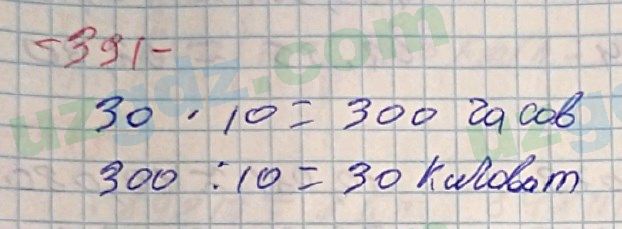 -391-
30 · 10 = 300 часов
300 : 10 = 30 киловат
uzgdz.com